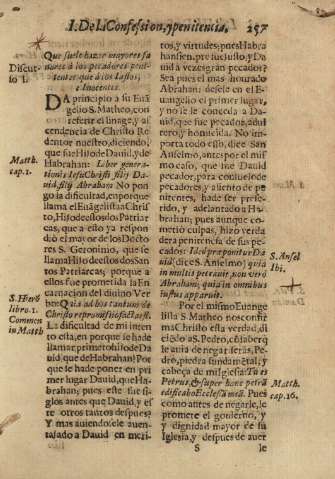 I. De la Confession, y penitencia. 257
Que suele hazer mayores fa
uores a los pecadores peni
tentes que a los Iustos,
e inocentes.
Discur
so I.
DA principio a su Euã
gelio S. Matheo, con
referir el linage, y as
cendencia de Christo Re
dentor nuestro, diciendo,
que fue Hijo de Dauid, y de
Habrahan: Liber genera-
tionis Iesu Christi filij Da-
uid, filij Abraham No pon-
go la dificultad, en porque
llama el Euãgelista a Chris
to, Hijo destos dos Patriar
cas, que a esto ya respon
dio el mayor de los Docto
res S. Geronimo, que se
llama Hijo destos dos San
tos Patriarcas; porque a
ellos fue prometida la En
carnacion del diuino Ver
bo: Quia ad hos tantum de
Christo repromissio facta est.
La dificultad de mi inten
to està, en porque se ha de
llamar, primero hijo de Da
uid, que de Habrahan? Por
que se ha de poner en pri
mer lugar Dauid, que Ha
brahan; pues, este fue si-
glos antes que Dauid, y es
te otros tantos despues?
Y mas auiendole auen
tajado a Dauid en meri-
Matth.
cap. 1.
S. Hierõ
libro. 1.
Commen
in Matth
tos, y virtudes; pues Habra
han siẽpre fue justo, y Da
uid a vezes gran pecador?
Sea pues el mas honrado
Abrahan: desele en el E-
uangelio el primer lugar,
y no se le conceda a Da-
uid, que fue pecador, adul
tero, y homicida. No im-
porta todo esso, dice San
Anselmo, antes por el mis
mo caso, que fue Dauid
pecador, para consuelo de
pecadores, y aliento de pe
nitentes, ha de ser prefe-
rido, y adelantado a Ha-
brahan; pues aunque co-
metio culpas, hizo verda
dera penitencia de sus pe-
cados: Ideò præponitur Da
uid (dice S. Anselmo) quia
in multis peccauit, non verò
Abraham; quia in omnibus
iustus apparuit.
S. Ansel
Ibi.
Por el mismo Euange
lista S. Matheo nos confir
ma Christo esta verdad, di
ciedo a S. Pedro, cõ saber q̃
le auia de negar: seràs, Pe-
dro, piedra fundamẽtal, y
cabeça de mi Iglesia: Tu es
Petrus, & super hanc petrã
ædificabo Ecclesiã meã. Pues
como antes de negarle, le
promete el gouierno, y
y dignidad mayor de su
Iglesia, y despues de auer
Matth.
cap. 16.
S le